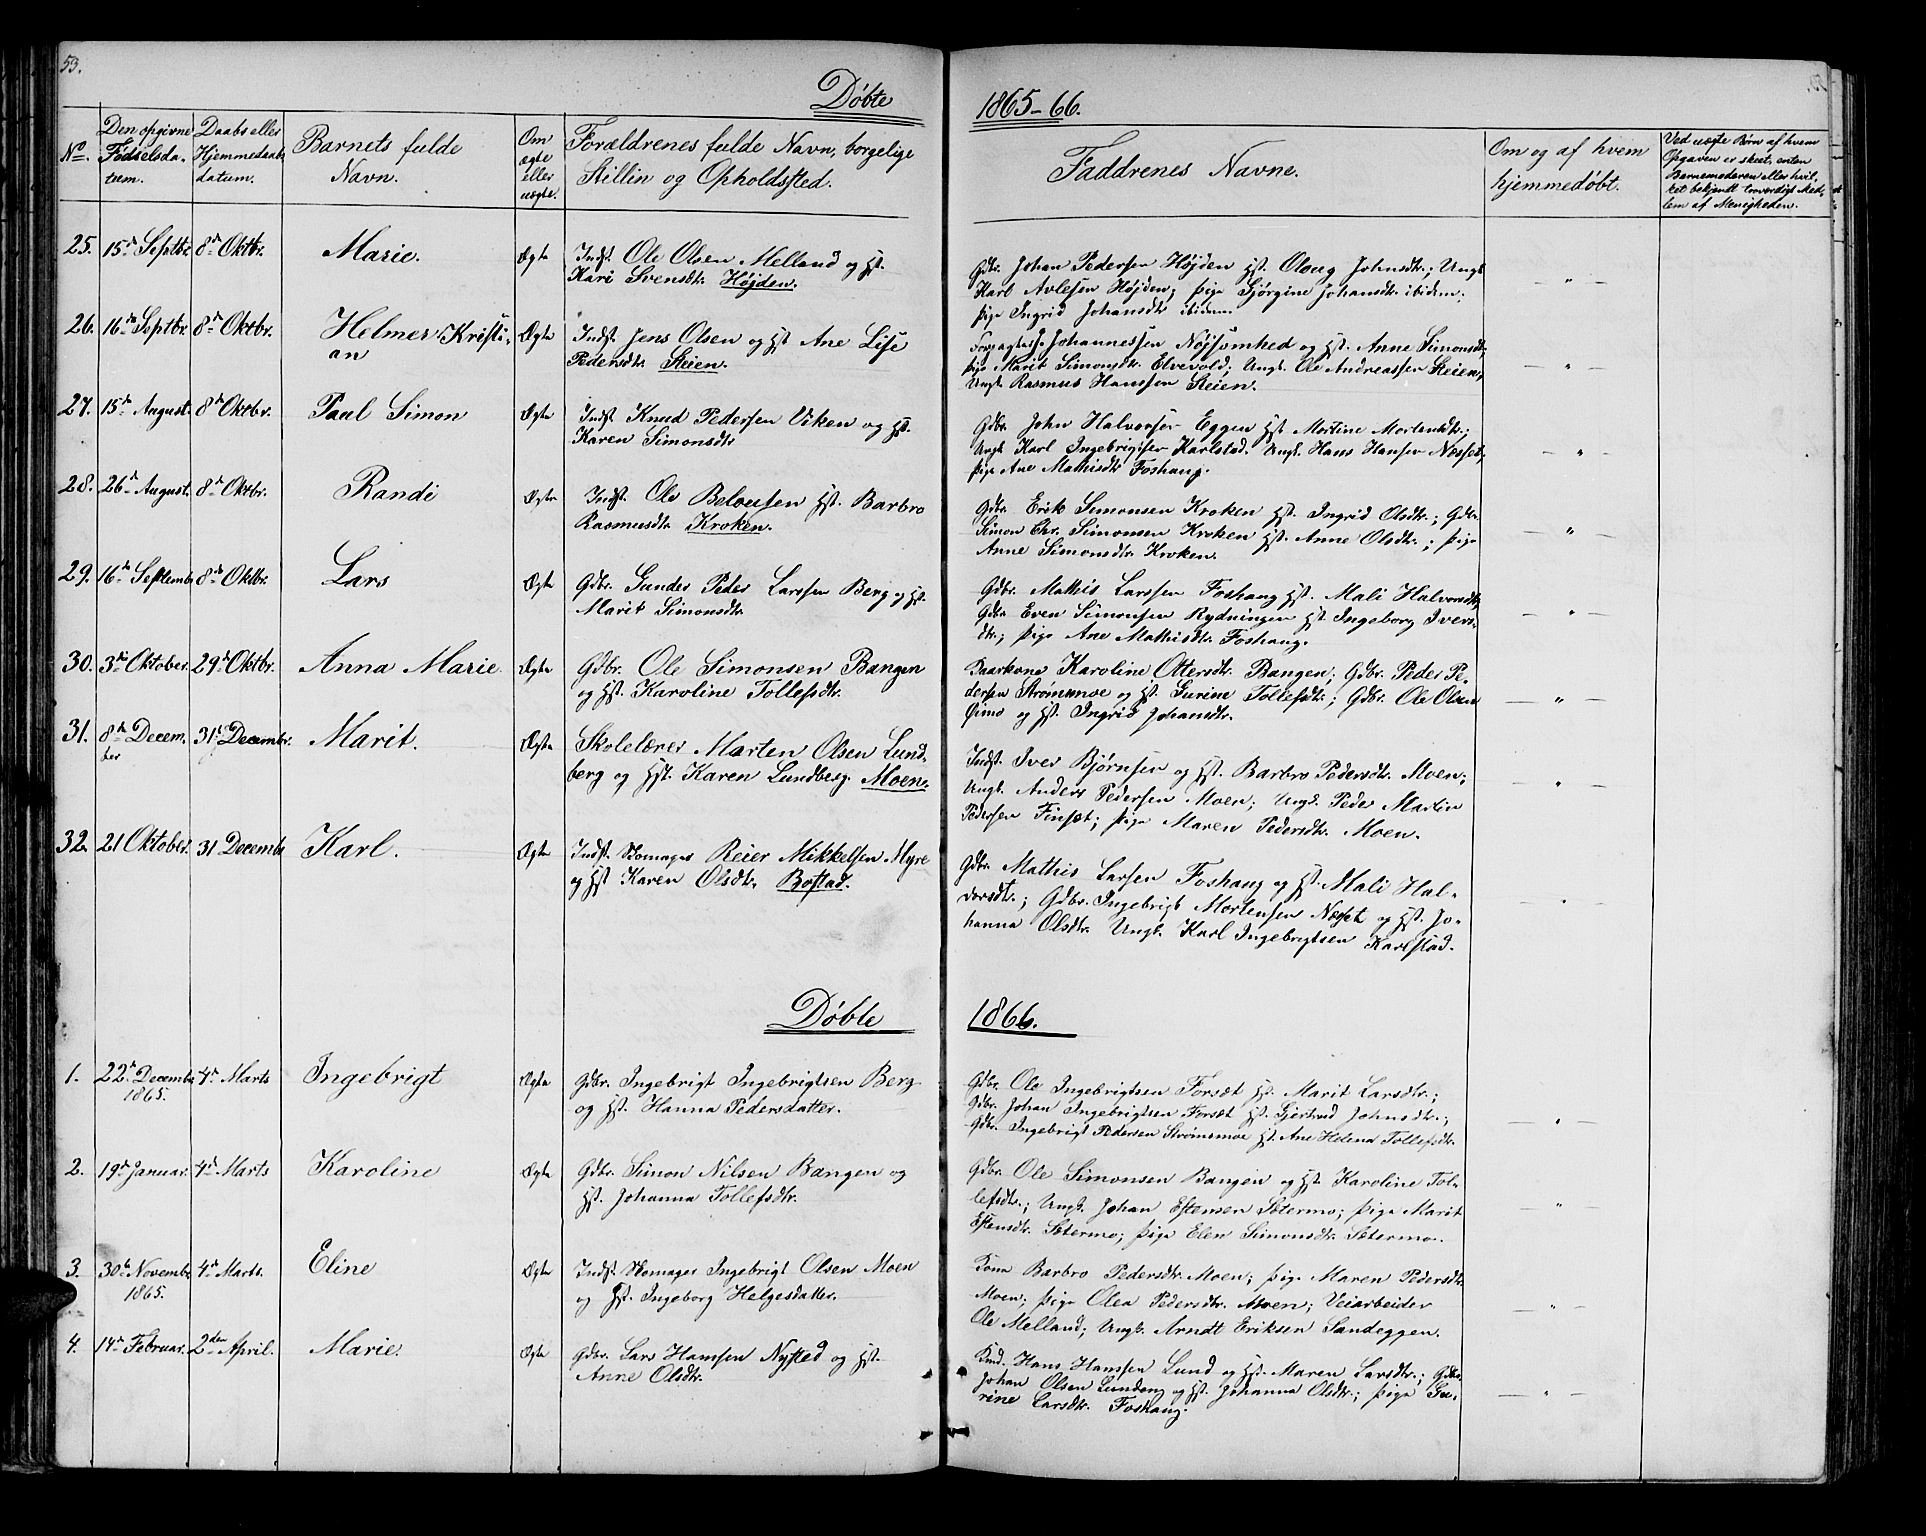 53.
Døbte
1865-66.
No.
Den opgivne Fødselsda-tum.
Daabs eller Hjemmedaabs datum.
Barnets fulde Navn.
Om ægte eller uægte.
Forældrenes fulde Navn, borgelige Stillin og Opholdsted.
Faddrenes Navne.
Om og af hvem hjemmedøbt.
Ved uægte Børn af hvem Opgaven er skeet, enten Barnemoderen eller hvilket bekjendt troværdigt Medlem af Menigheden.
25. 15de Septbr. 8de Oktbr. Marie. Ægte Indst. Ole Olsen Melland og Hst.
Kari Svensdtr. Højden.
Gdbr. Johan Pedersen Højden Hst. Oloug Johnsdtr.; Ungk.
Karl Avlesen Højden; Pige Gjørgine Johansdtr. ibidem;
Pige Ingrid Johansdtr. ibidem.
26. 16de Septbr. 8de Oktbr. Helmer Kristi-
an Ægte Indst. Jens Olsen og Hst. Ane Lise
Pedersdtr. Steien.
Johannessen Nøjsomhed og Hst. Anne Simonsdtr.
Pige Marit Simonsdtr. Elvevold; Ungk. Ole Andreassen Steien;
Ungk. Rasmus Hanssen Steien.
27. 15de August. 8de Oktbr. Paul Simon Ægte Indst. Knud Pedersen Viken og Hst.
Karen Simonsdtr.
Gdbr. John Halvorsen Eggen Hst. Martine Mortensdtr.;
Ungk. Karl Ingebrigtsen Karlstad. Ungk. Hans Hansen Næsset,
Pige Ane Mathisdtr. Foshaug.
28. 26de August. 8de Oktbr. Randi Ægte Indst. Ole Hst. Barbro
Rasmusdtr. Kroken.
Gdbr. Erik Simonsen Kroken Hst. Ingrid Olsdtr.; Gdbr.
Simon Chr. Simonsen Kroken Hst. Anne Olsdtr.; Pige
Anne Simonsdtr. Kroken.
29. 16de Septembr. 8de Oktbr. Lars Ægte Gdbr. Gunder Peder Larssen Berg og Hst.
Marit Simonsdtr.
Gdbr. Mathis Larssen Foshaug Hst. Mali Halvorsdtr.
Gdbr. Even Simonsen Rydningen Hst. Ingeborg Ivers-
dtr.; Pige Ane Mathisdtr. Foshaug.
30. 3die Oktober. 29de Oktbr. Anna Marie. Ægte Gdbr. Ole Simonsen Bangen
og Hst. Karoline Tollefsdtr.
Kaarkone Karoline Ottersdtr. Bangen; Gdbr. Peder Pe-
dersen Strømsmoe og Hst. Gurine Tollefsdtr.; Gdbr. Ole Olsen
og Hst. Ingrid Johansdtr.
31. 8de Decem-
ber 31te Decembr. Marit. Ægte Skolelærer Morten Olsen Lund-
berg og Hst. Karen Lundberg. Moen.
Indst. Iver Bjørnsen og Hst. Barbro Pedersdtr. Moen;
Ungk. Anders Pedersen Moen; Ungk. Peder Martin
Pedersen Finset; Pige Maren Pedersdtr. Moen.
32. 21 Oktober. 31 Decembr. Karl. Ægte Indst. Skomager Reier Mikkelsen Myre
og Hst. Karen Olsdtr. Bostad.
Gdbr. Mathis Larsen Foshaug og Hst. Mali Hal-
vorsdtr.; Gdbr. Ingebrigt Mortensen Næsset og Hst. Jo-
hanna Olsdtr. Ungk. Karl Ingebrigtsen Karlstad.
Døbte
1866.
1. 22de Decembr.
1865. 4de Marts Ingebrigt Ægte Gdbr. Ingebrigt Ingebrigtsen Berg
og Hst. Hanna Pedersdatter.
Gdbr. Ole Ingebrigtsen Forsæt Hst. Marit Larsdtr.;
Gdbr. Johan Ingebrigtsen Forsæt Hst. Gjertrud Johnsdtr.;
Gdbr. Ingebrigt Pedersen Strømsmoe Hst. Ane Helena Tollefsdtr.
2. 19de Januar. 4de Marts Karoline Ægte Gdbr. Simon Nilsen Bangen og
Hst. Johanna Tollefsdtr.
Gdbr. Ole Simonsen Bangen og Hst. Karoline Tol-
lefsdtr.; Ungk. Johan Estensen Setermo; Pige Marit
Estensdtr. Setermo; Pige Elen Simonsdtr. Setermo.
3. 30te Novembr.
1865. 4de Marts. Eline Ægte Indst. Skomager Ingebrigt Olsen Moen
og Hst. Ingeborg Helgesdatter.
Kone Barbro Pedersdtr. Moen; Pige Maren Pedersdtr.
Moen; Pige Olea Pedersdtr. Moen; Veiarbeider
Ole Melland; Ungk. Arndt Eriksen Sandeggen.
4. 14de Februar. 2den April. Marie. Ægte Gdbr. Lars Hansen Nysted og Hst.
Anne Olsdtr.
Hans Hanssen Lund og Hst. Maren Larsdtr.; Gdbr.
Johan Olsen Lundeng og Hst. Johanna Olsdtr.; Pige Gu-
rine Larsdtr. Foshaug.